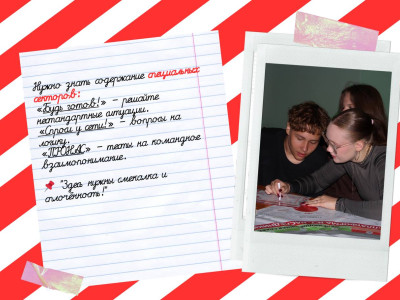 Нужно знать содержание специальных
секторов:
«Будь готов!» – решайте
нестандартные ситуации.
«Строг у сети!» – вопросы на
логику.
– тесты на командное
взаимопонимание.
"Здесь нужны смекалка и
сплочённость!"